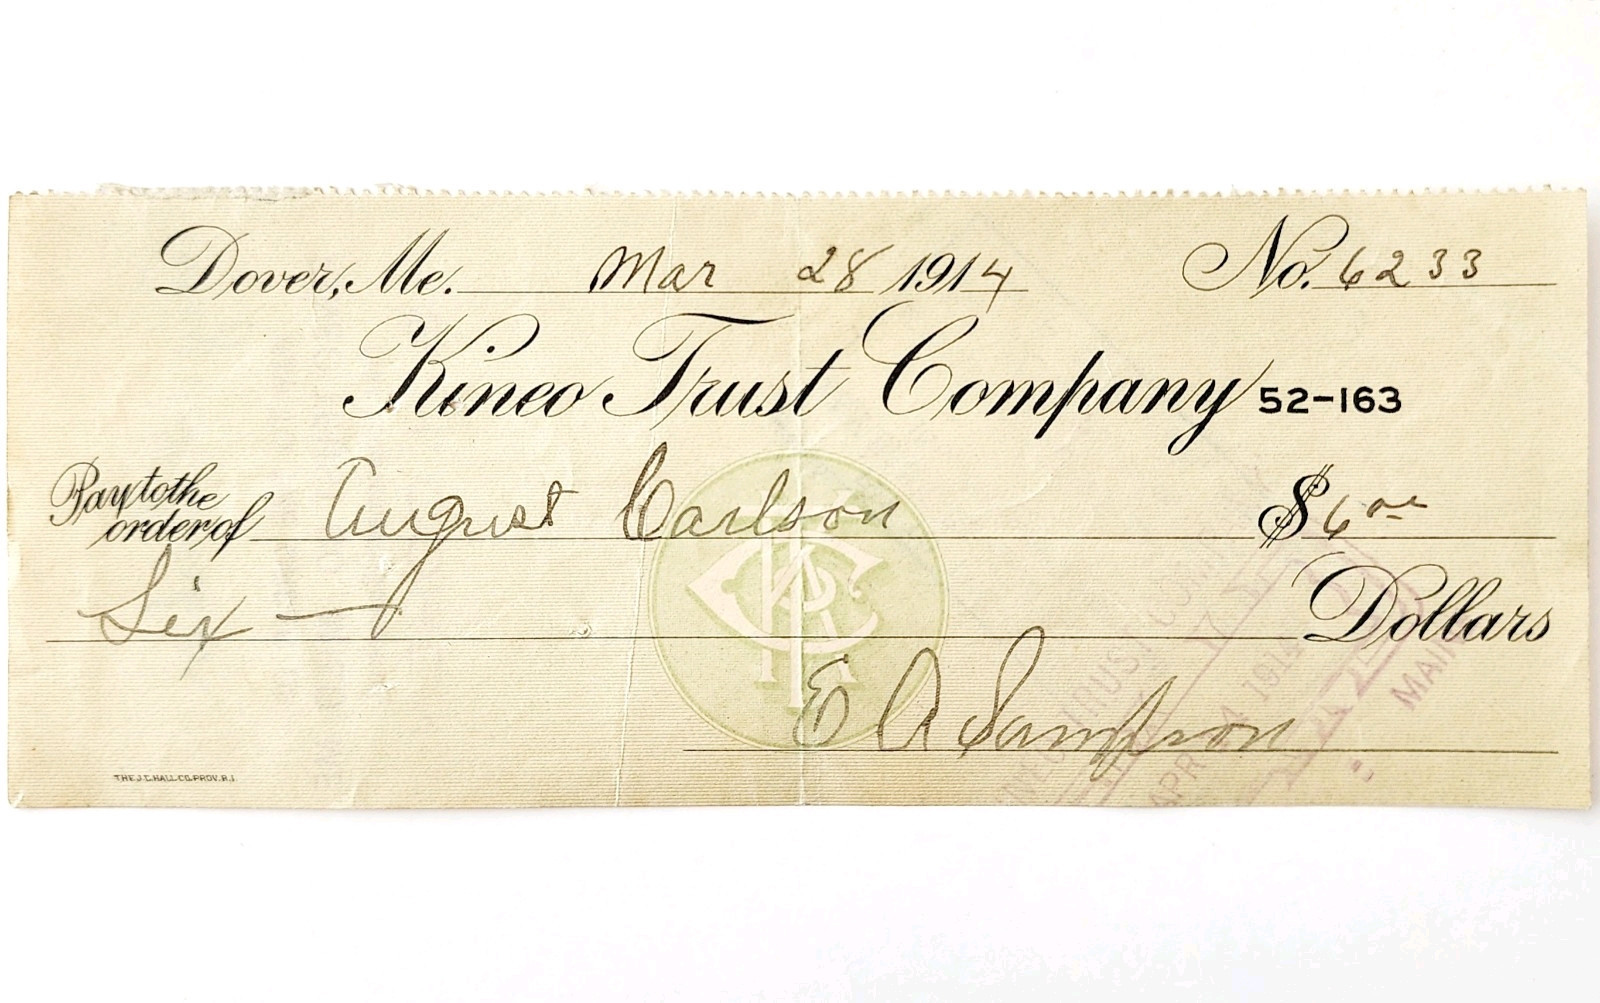 Dover, Me. Mar 28 1914 No. 6233
Kineo Trust Company 52-163
Pay to the order of August Carlson $6 00
Six Dollars
E A Sampson
TRUST COM
APR 1914
MAIN
THE J.C. HALL CO. PROV. R.I.